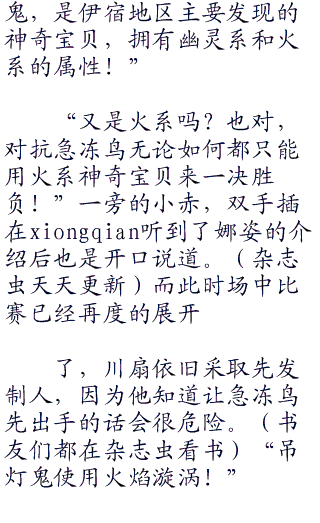 鬼，是伊宿地区主要发现的
神奇宝贝，拥有幽灵系和火
系的属性！”
“又是火系吗？也对，
对抗急冻鸟无论如何都只能
用火系神奇宝贝来一决胜
负！”一旁的小赤，双手插
在xiongqian听到了娜姿的介
绍后也是开口说道。（杂志
虫天天更新）而此时场中比
赛已经再度的展开
了，川扇依旧采取先发
制人，因为他知道让急冻鸟
先出手的话会很危险。（书
友们都在杂志虫看书）“吊
灯鬼使用火焰漩涡！”